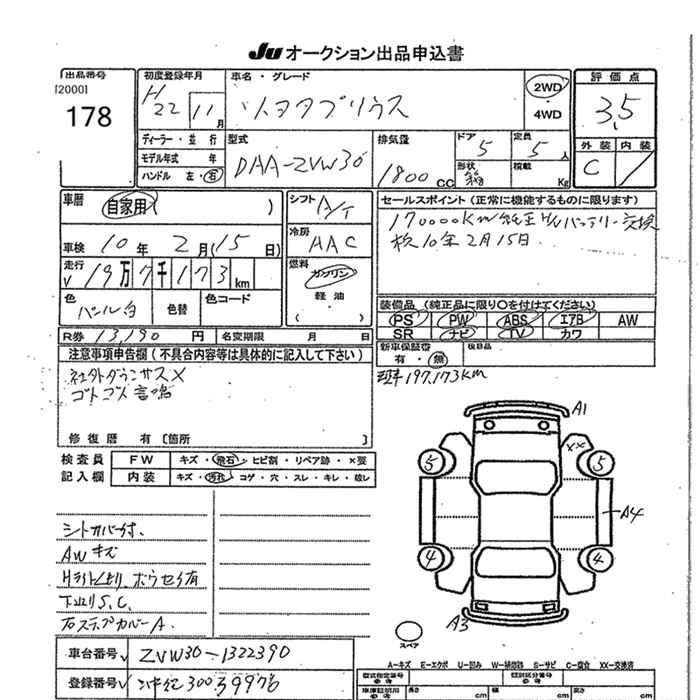 Ju オークション出品申込書
出品番号
[2000]
178
初度登録年月
H22 11月
車名・グレード
トヨタプリウス
2WD
・
4WD
評価点
3.5
外装 内装
C
ディーラー・並行
モデル年式 年
ハンドル 左・右
型式
DAA-ZVW30
排気量
1800 CC
ドア 5
定員 5 人
形状
積載 Kg
車歴
自家用( )
車検 10年 2月(15日)
走行 19万7千173km
色
パール白
色替
色コード
シフト A/T
冷房
AAC
燃料
ガソリン
軽油
( )
セールスポイント(正常に機能するものに限ります)
170000Km 純正HVバッテリー交換
検10年2月15日
装備品(純正品に限り○を付けてください)
PS PW ABS エアB AW
SR ナビ TV カワ
R券 13,190 円
名変期限 月 日
新車保証書
有・無
後日品
注意事項申告欄(不具合内容等は具体的に記入して下さい)
社外ダウンサス×
ゴトゴト音鳴
修復歴 有 [箇所 ]
197.173KM
検査員
記入欄
FW キズ・飛石・ヒビ割・リペア跡・×要
内装 キズ・汚れ・コゲ・穴・スレ・キレ・破レ
シートカバー付、
AWキズ
Hライトくもり、
S.C.
右ステップカバーA.
A1
××
5 5
A4
4 4
A3
スペア
車台番号 ZVW30-1322390
登録番号 300 39976
A-キズ E-エクボ U-凹み W-補修跡 S-サビ C-腐食 XX-交換済
型式指定番号
参考
類別区分番号
参考
車庫証明用
参考
長さ cm
幅 cm
高さ cm